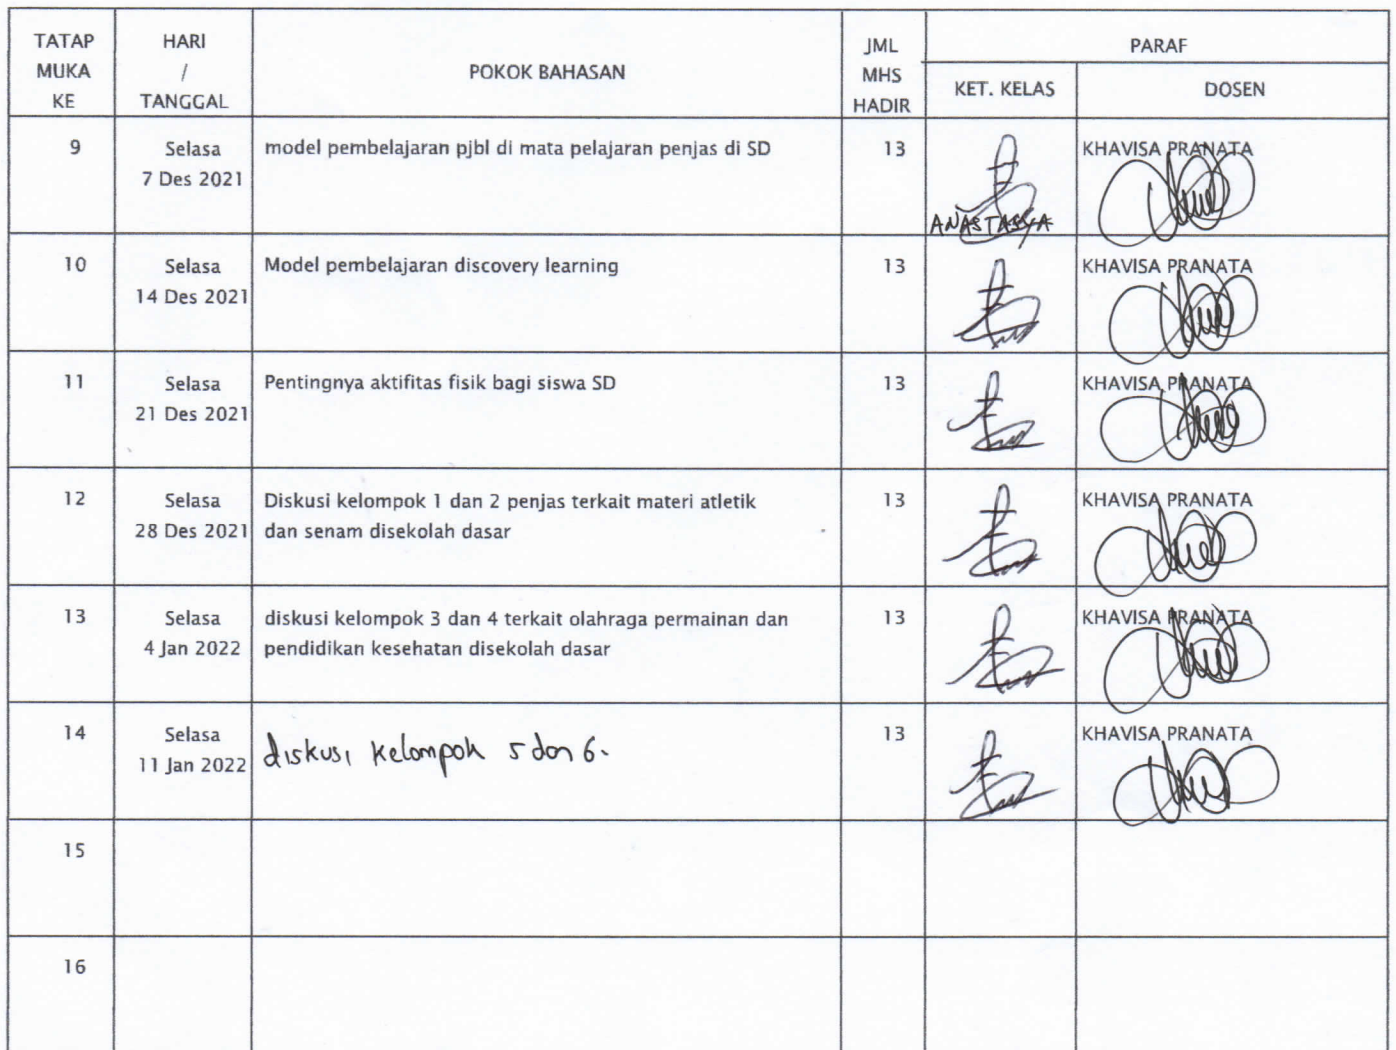 TATAP MUKA KE
HARI / TANGGAL
POKOK BAHASAN
JML MHS HADIR
PARAF
KET. KELAS
DOSEN
9
Selasa
7 Des 2021
model pembelajaran pjbl di mata pelajaran penjas di SD
13
ANASTASYA
KHAVISA PRANATA
10
Selasa
14 Des 2021
Model pembelajaran discovery learning
13
KHAVISA PRANATA
11
Selasa
21 Des 2021
Pentingnya aktifitas fisik bagi siswa SD
13
KHAVISA PRANATA
12
Selasa
28 Des 2021
Diskusi kelompok 1 dan 2 penjas terkait materi atletik
dan senam disekolah dasar
13
KHAVISA PRANATA
13
Selasa
4 Jan 2022
diskusi kelompok 3 dan 4 terkait olahraga permainan dan
pendidikan kesehatan disekolah dasar
13
KHAVISA PRANATA
14
Selasa
11 Jan 2022
diskusi kelompok 5 dan 6.
13
KHAVISA PRANATA
15
16